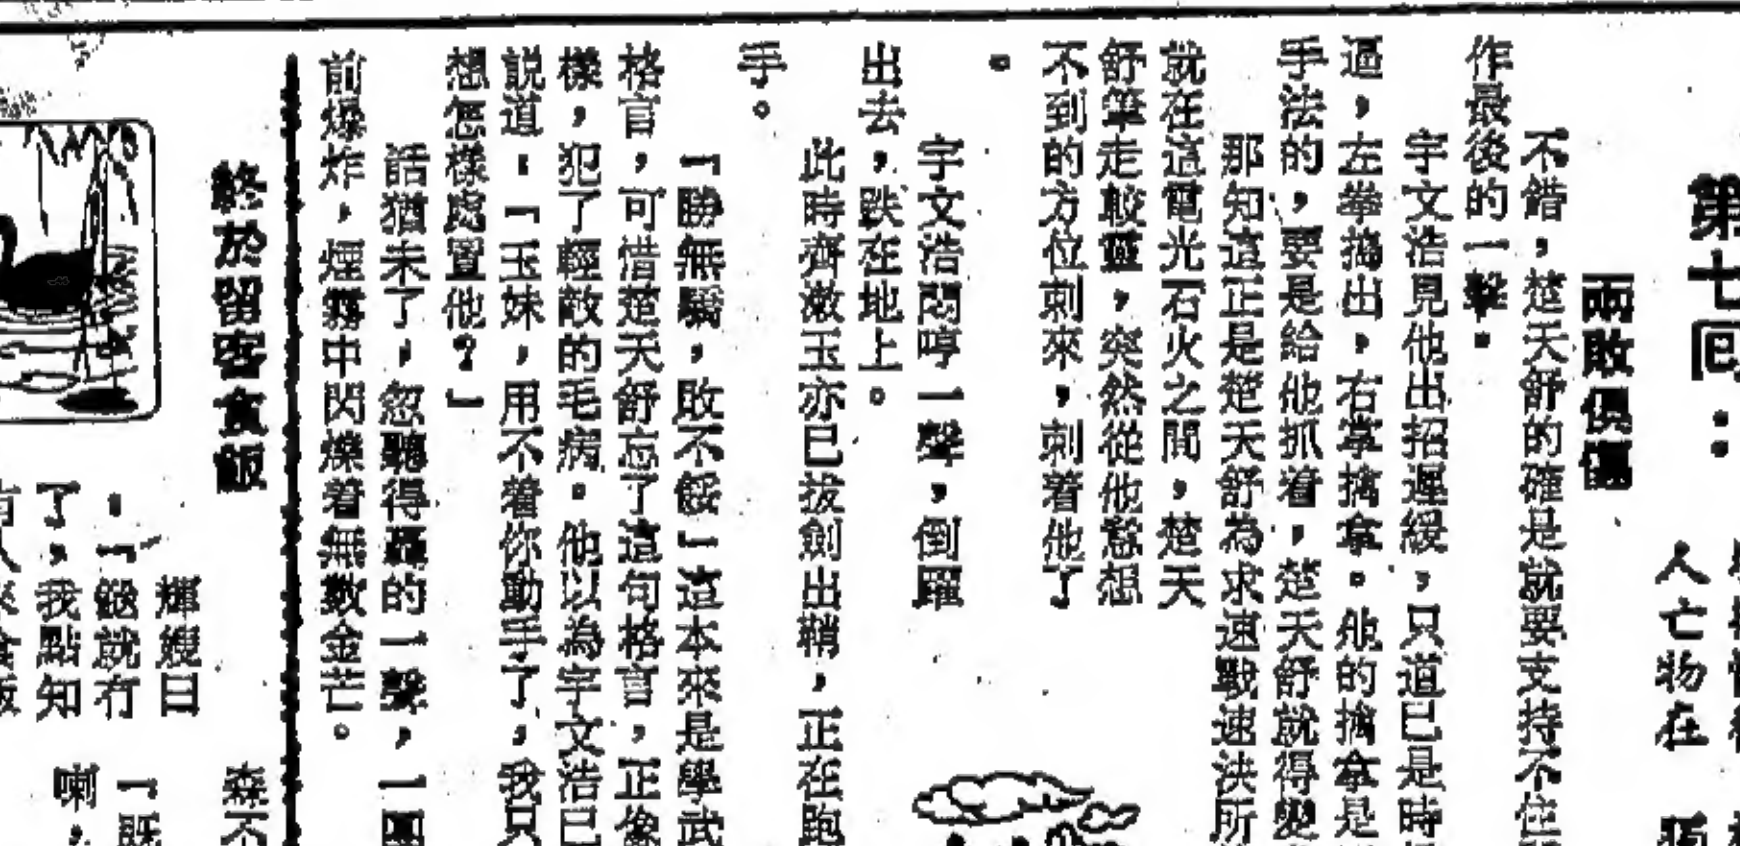 第七回：
人亡物在
兩敗俱傷
不錯，楚天舒的確是就要支持不住
作最後的一擊。
宇文浩見他出招遲緩，只道已是時
過，左拳搗出，右掌擒拿。他的擒拿是
手法的，要是給他抓着，楚天舒就得變
那知這正是楚天舒為求速戰速決所
就在這電光石火之間，楚天
舒筆走較靈，突然從他意想
不到的方位刺來，刺着他了
。
宇文浩悶哼一聲，倒躍
出去，跌在地上。
此時齊漱玉亦已拔劍出鞘，正在跑
手。
「勝無驕，敗不餒」這本來是學武
格言，可惜楚天舒忘了這句格言，正像
樣，犯了輕敵的毛病。他以為宇文浩已
説道：「玉妹，用不着你動手了，我只
想怎樣處置他？」
話猶未了，忽聽得轟的一聲，一團
前爆炸，煙霧中閃爍着無數金芒。
終於留客食飯
森不
輝嫂日
「餸就冇
「既
了，我點知
喇，